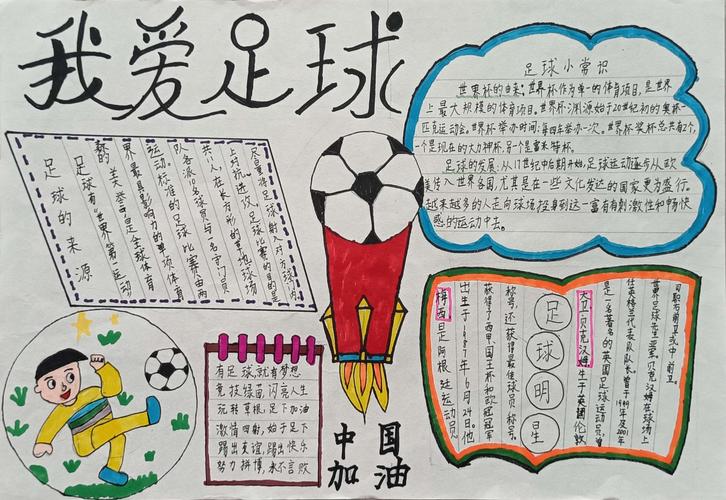 我爱足球
足球的来源
足球有"世界第一运动"
的美誉,是全球体育
界最具影响力的单项体育
运动。标准的足球比赛由两
队各派10名球员与一名守门员
共11人,在长方形的草地球场
上对抗、进攻。足球比赛的目的是
尽量将足球射入对方球门内,
足球小常识
世界杯的由来:世界杯作为单一的体育项目,是世界
上最大规模的体育项目。世界杯渊源始于20世纪初的奥林
匹克运动会。世界杯举办时间:每四年举办一次。世界杯奖杯总共有2个,
一个是现在的大力神杯,另一个是雷米特杯。
足球的发展:从17世纪中后期开始,足球运动逐步从欧
美传入世界各国,尤其是在一些文化发达的国家更为盛行。
越来越多的人走向球场投身到这一富有刺激性和畅快
感的运动中去。
有足球,就有梦想
竞技绿茵,闪亮人生
玩转草根,足下加油
激情四射,始于足下
踢出友谊,踢出快乐
努力拼搏,永不言败
中国
加油
梅西是阿根廷运动员
出生于1987年6月24日。他
获得了西甲、国王杯和欧冠冠军
称号,还获得最佳球员称号。
足球明星
大卫·贝克汉姆生于英国伦敦
是一名著名的英国足球运动员,曾
任英格兰代表队队长。曾于1999年及2001年
世界足球先生亚军。贝克汉姆在球场上
司职右前卫或中前卫。